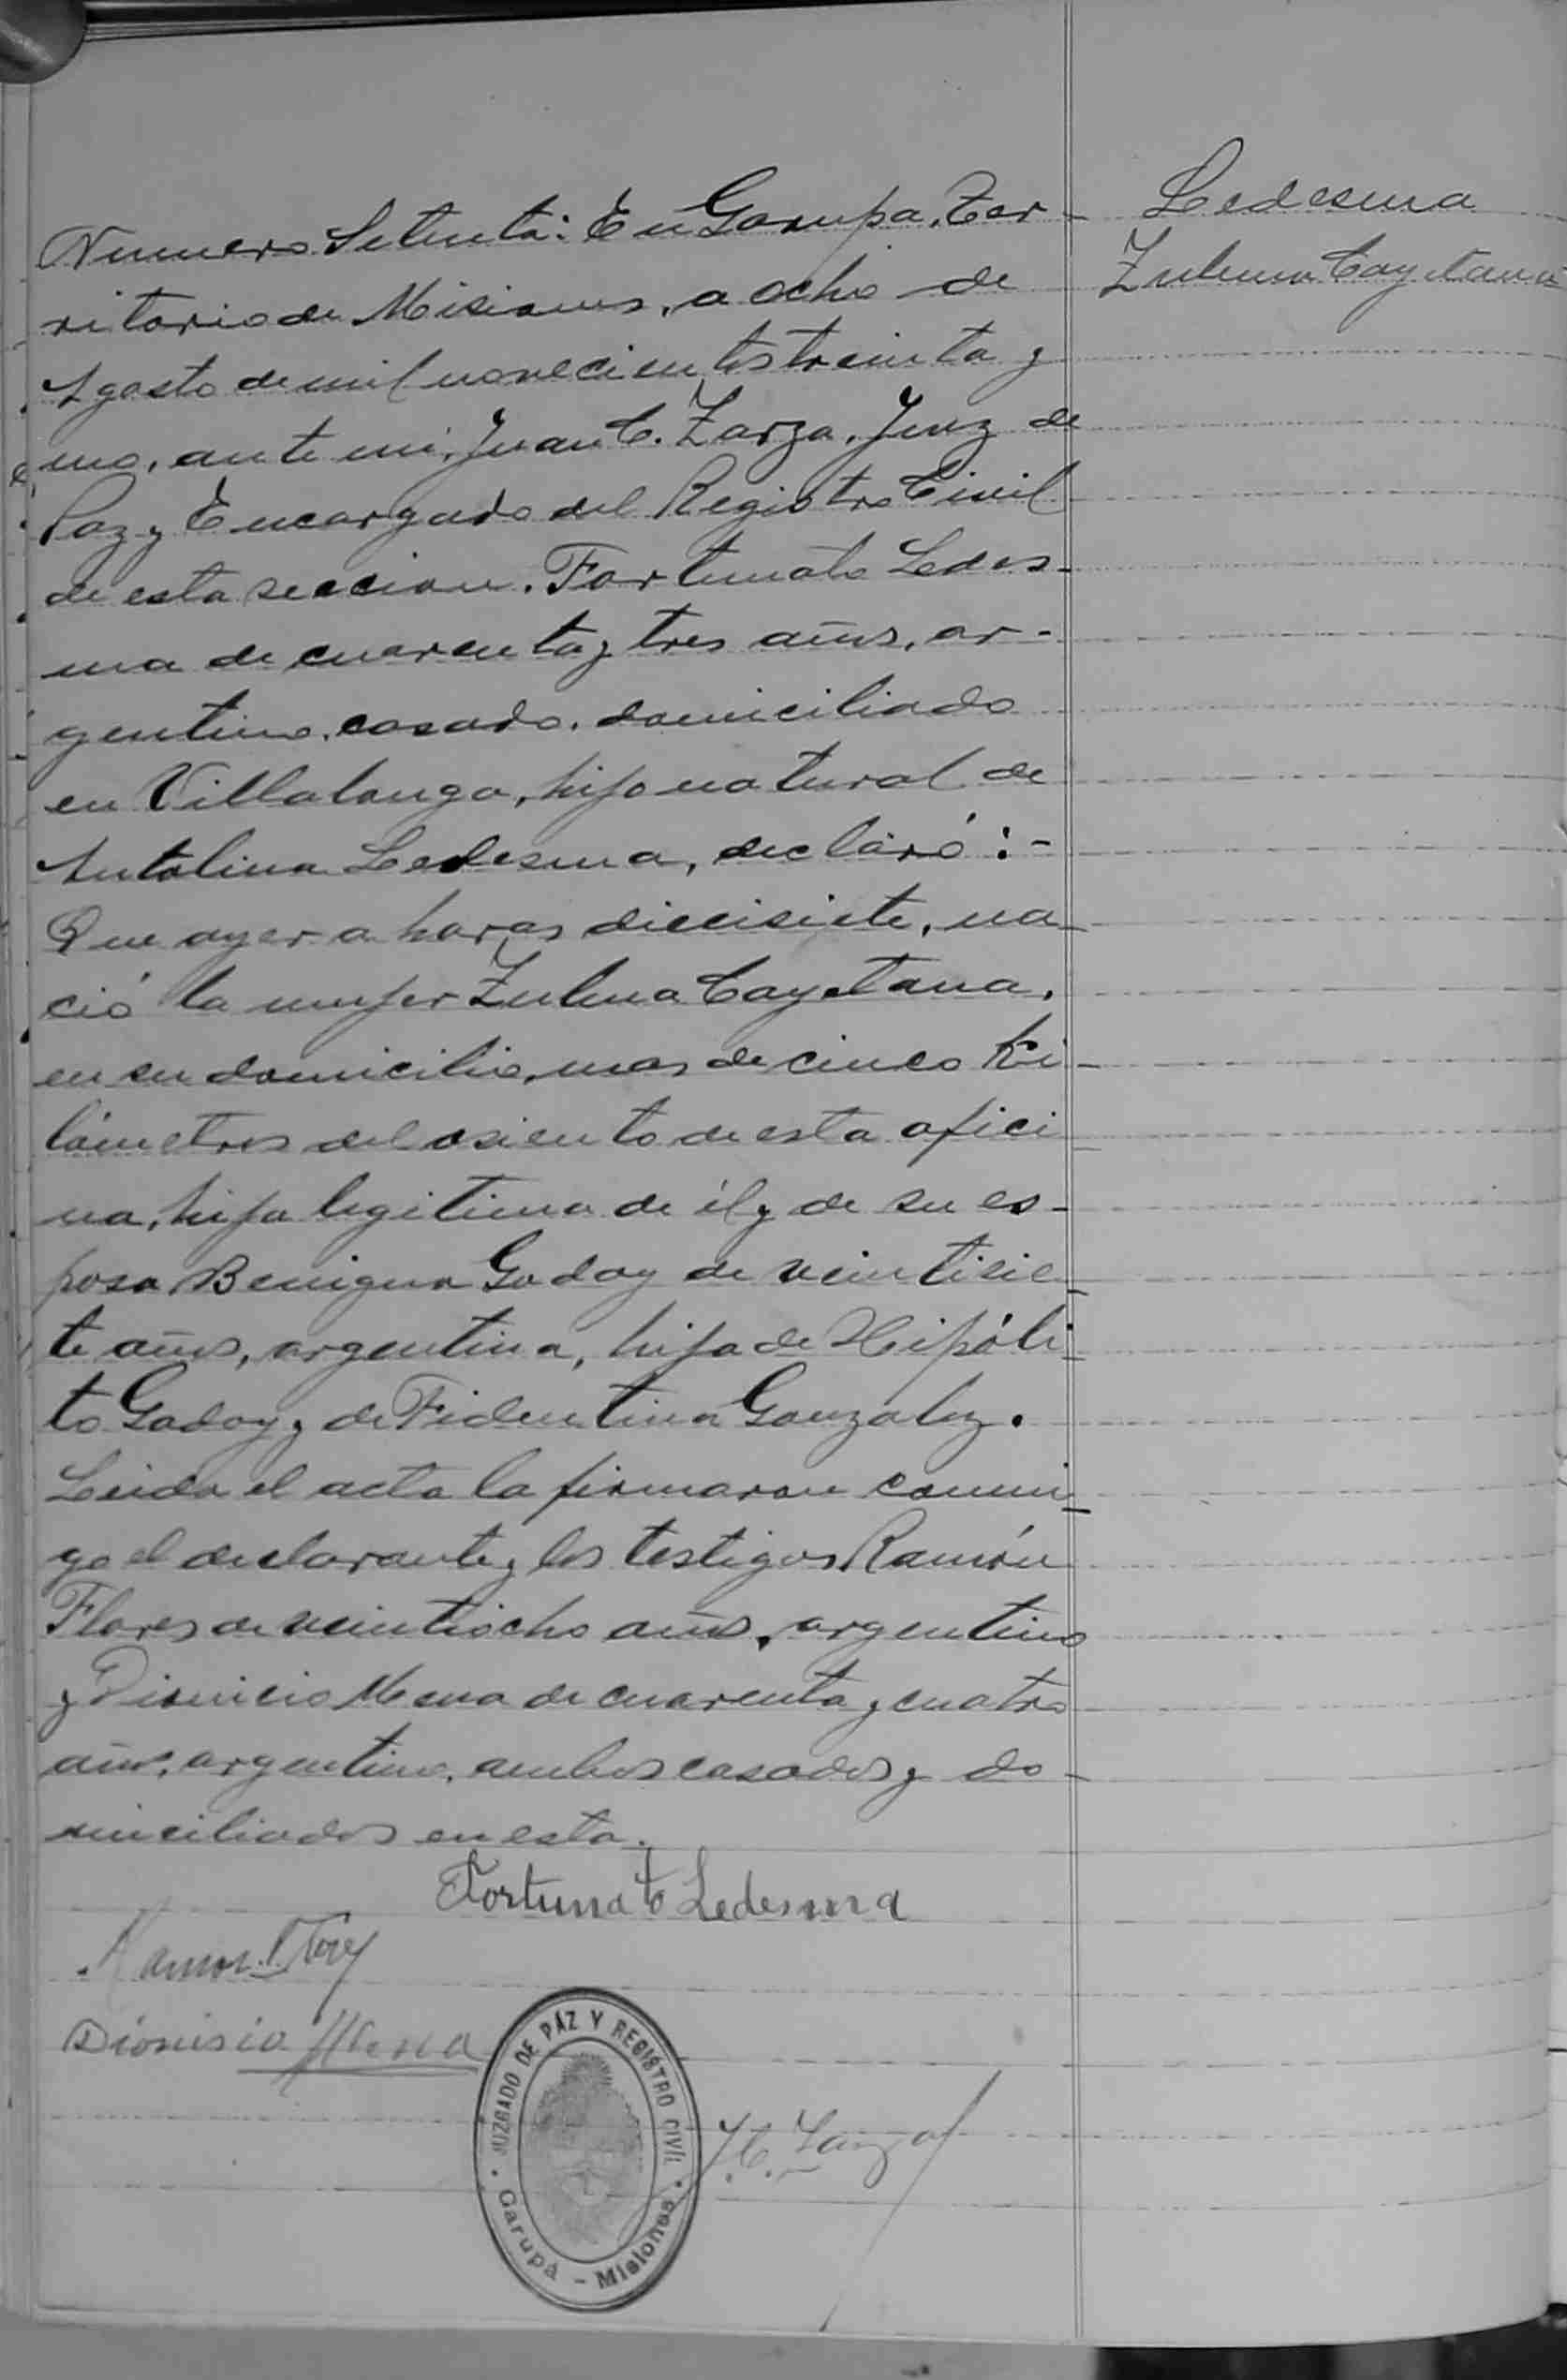 Numero Setenta: En Garupa, Ter-
ritorio de Misiones, a ocho de
Agosto de mil novecientos treinta y
uno, ante mi, Juan C. Zarza, Juez de
Paz y Encargado del Registro Civil
de esta seccion. Fortunato Ledes-
ma de cuarenta y tres años, ar-
gentino, casado, domiciliado
en Villalonga, hijo natural de
Antolina Ledesma, declaró:-
Que ayer a horas diecisiete, na-
ció la mujer Zulma Cayetana,
en su domicilio, mas de cinco Ki-
lómetros del asiento de esta ofici-
na, hija legitima de él y de su es-
posa Benigna Godoy de veintisie-
te años, argentina, hija de Hipóli-
to Godoy y de Fidentina Gonzalez.
Leida el acta la firmaron conmi-
go el declarante y los testigos Ramón
Flores de veintiocho años, argentino
y Dionicio Mena de cuarenta y cuatro
años, argentino, ambos casados y do-
miciliados en esta.
Ledesma
Zulema Cayetana
Fortunato Ledesma
Ramon Flores
Dionisio Mena
J. C. Zarza
JUZGADO DE PAZ Y REGISTRO CIVIL
Garupá - Misiones